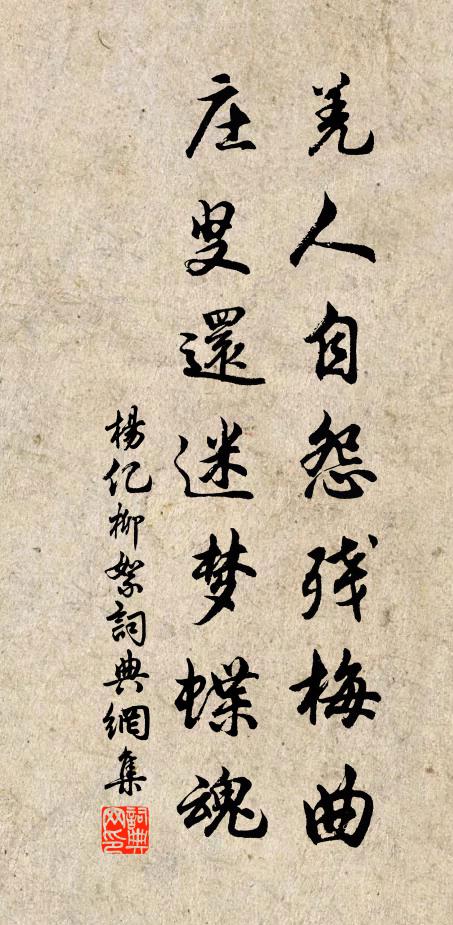 羌人自怨残梅曲
庄叟還迷梦蝶魂
楊亿柳絮詞典網集
詞典網印